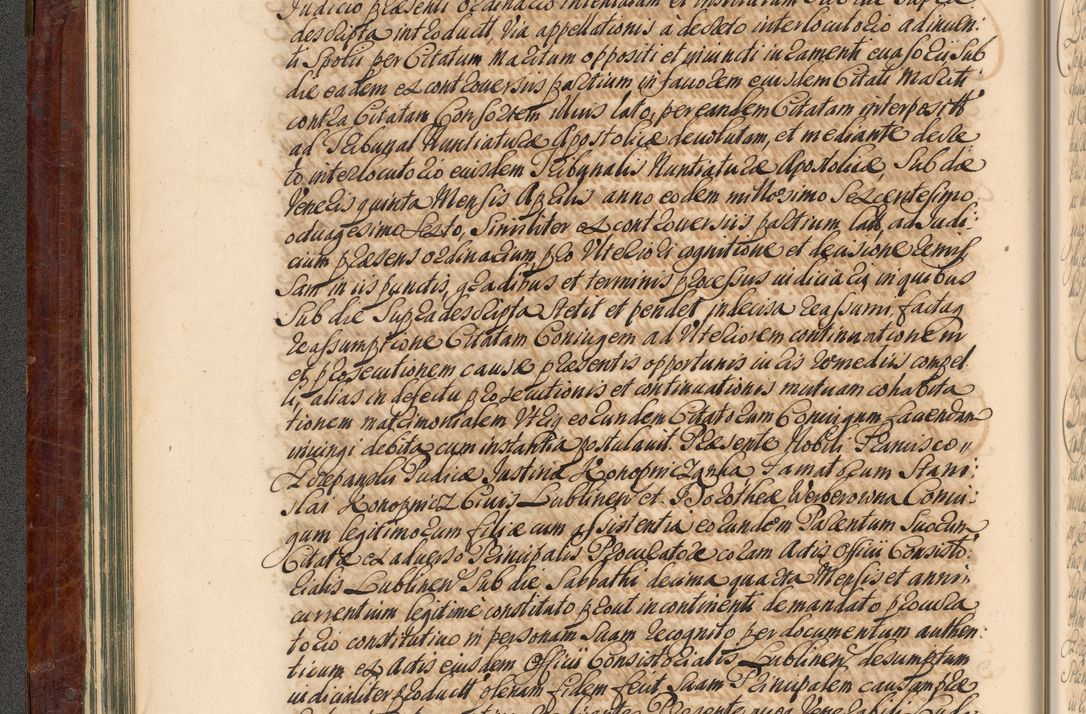 Judicio præsenti ordinario intentatam et institutam sub die supra
descripta introduct. Via appellationis à decreto interlocutorio adinven:
ti Spolii per Citatum Maritum oppositi et iniuncti iuramenti evasorii sub
die eadem ex controversiis partium in favorem eiusdem Citati Mariti
contra Citatam Consortem illius lato, per eandem Citatam interpositæ
ad Tribunal Nuntiaturæ Apostolicæ devolutam, et mediante decre
to interlocutorio eiusdem Tribunalis Nuntiaturæ Apostolicæ, sub die
Veneris quinta Mensis Aprilis anno eodem millesimo sexcentesimo
octuagesimo sexto, similiter ex controversiis partium lato, ad Judi:
cium præsens ordinarium pro ulteriori cognitione et decisione remis
sam in iis punctis, gradibus et terminis processus iudiciarii in quibus
sub die supra descripta stetit et pendet indecisa reassumi, factaq
reassumptione Citatam Coniugem ad ulteriorem continuationem
et prosecutionem causæ præsentis opportunis iuris remediis compel
li, alias in defectu prosecutionis et continuationis mutuam cohabita
tionem matrimonialem utriq eorundem Citatorum Coniugum favendam
iniungi debita cum instantia postulavit. Præsente Nobili Francisco
Szczepanski Pudicæ Justinæ Konopniczanka Famatorum Stani:
slai Konopnicz Civis Lublinen et Dorotheæ Werberowna Coniu:
gum legitimorum filiæ cum assistentia eorundem Parentum suorum
Citatæ ex adverso Principalis Procuratore coram Actis Officii Consisto:
rialis Lublinen sub die Sabbathi decima quarta Mensis et anni
currentium legitime constituto prout incontinenti de mandato procura
torio constitutivo in personam suam recognito per documentum authen:
ticum ex Actis eiusdem Officii Consistorialis Lublinen desumptum
iudicialiter product. plenam fidem fecit suam Principalem causam præ